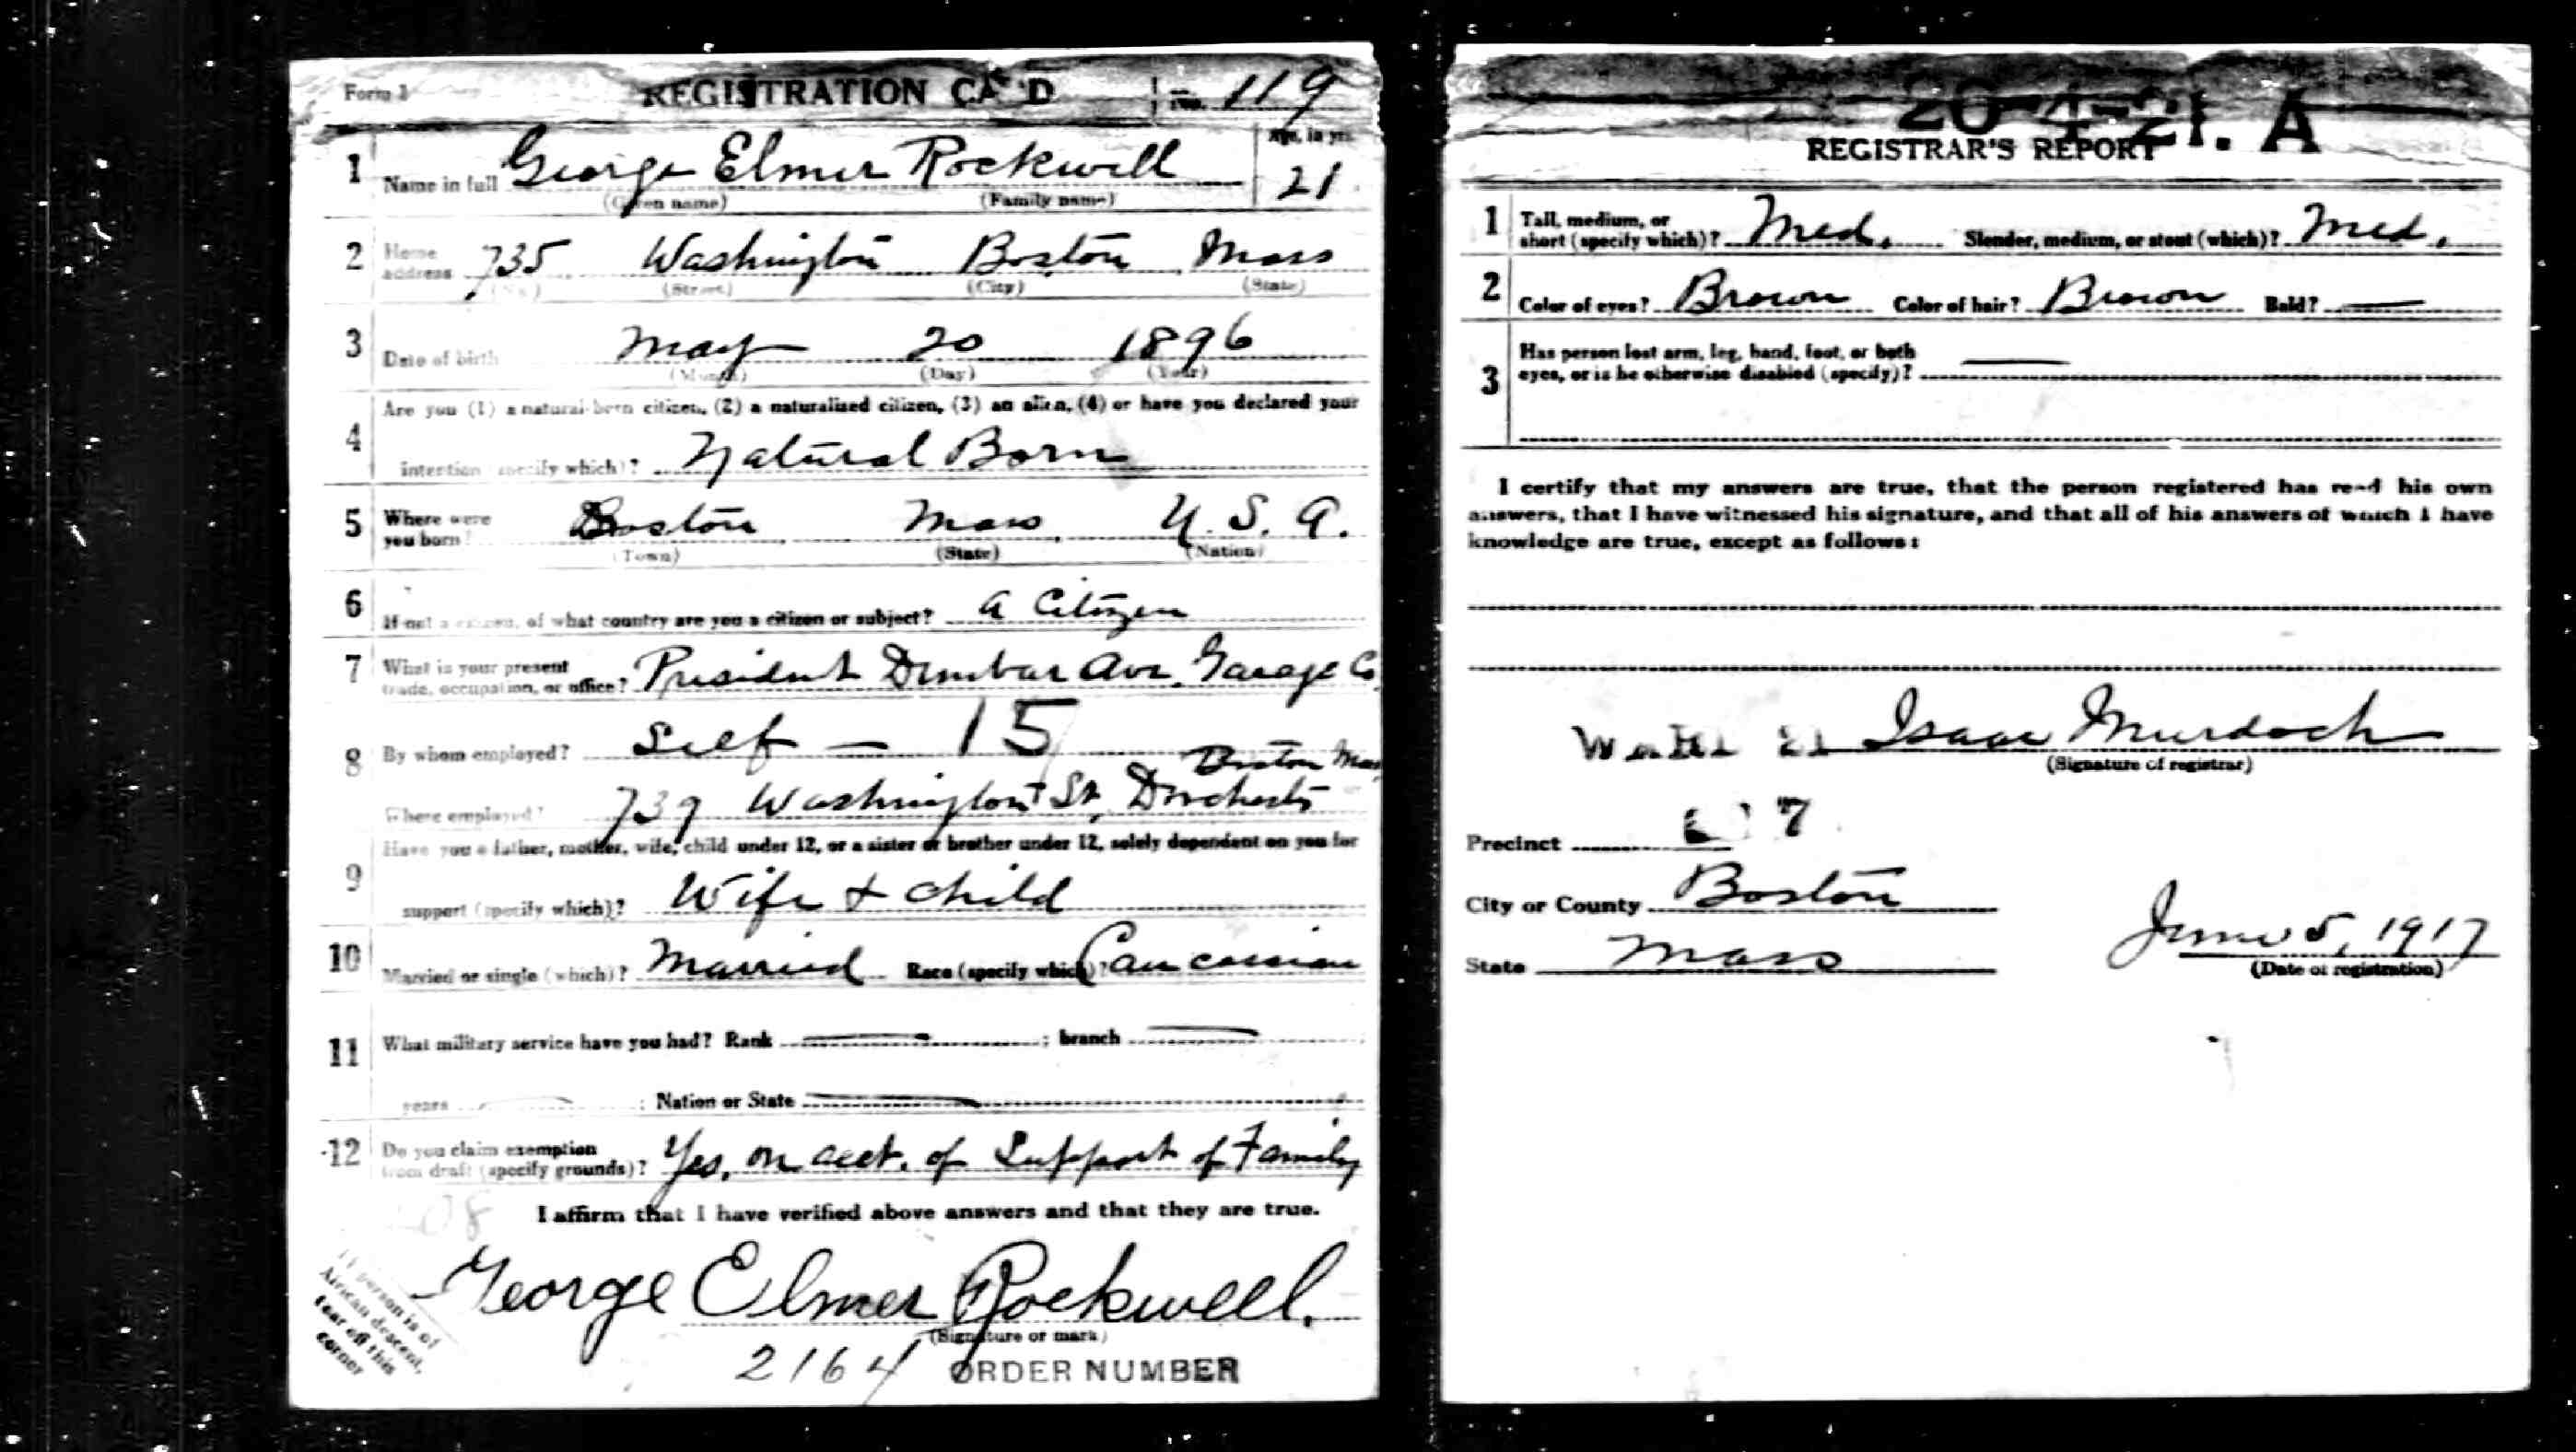 Form 1 REGISTRATION CARD No. 119
1 Name in full George Elmer Rockwell Age, in yrs. 21
(Given name) (Family name)
2 Home address 735 Washington Boston Mass
(No.) (Street) (City) (State)
3 Date of birth May 20 1896
(Month) (Day) (Year)
Are you (1) a natural-born citizen, (2) a naturalized citizen, (3) an alien, (4) or have you declared your
4 intention (specify which)? Natural Born
5 Where were you born? Boston Mass U. S. A.
(Town) (State) (Nation)
6 If not a citizen, of what country are you a citizen or subject? A Citizen
7 What is your present trade, occupation, or office? President Dunbar Ave. Garage Co
8 By whom employed? Self — 15
Boston Mass
Where employed? 739 Washington St, Dorchester
Have you a father, mother, wife, child under 12, or a sister or brother under 12, solely dependent on you for
9 support (specify which)? Wife + child
10 Married or single (which)? Married Race (specify which)? Caucasian
11 What military service have you had? Rank — ; branch —
years — ; Nation or State —
12 Do you claim exemption from draft (specify grounds)? Yes, on acct. of Support of Family
I affirm that I have verified above answers and that they are true.
George Elmer Rockwell.
(Signature or mark)
If person is of
African descent,
tear off this
corner
2164 ORDER NUMBER
20-4-21. A
REGISTRAR'S REPORT
1 Tall, medium, or short (specify which)? Med. Slender, medium, or stout (which)? Med.
2 Color of eyes? Brown Color of hair? Brown Bald? —
3 Has person lost arm, leg, hand, foot, or both eyes, or is he otherwise disabled (specify)? —
I certify that my answers are true, that the person registered has read his own
answers, that I have witnessed his signature, and that all of his answers of which I have
knowledge are true, except as follows:
Ward 21 Isaac Murdoch
(Signature of registrar)
Precinct 7
City or County Boston
State Mass June 5, 1917
(Date of registration)